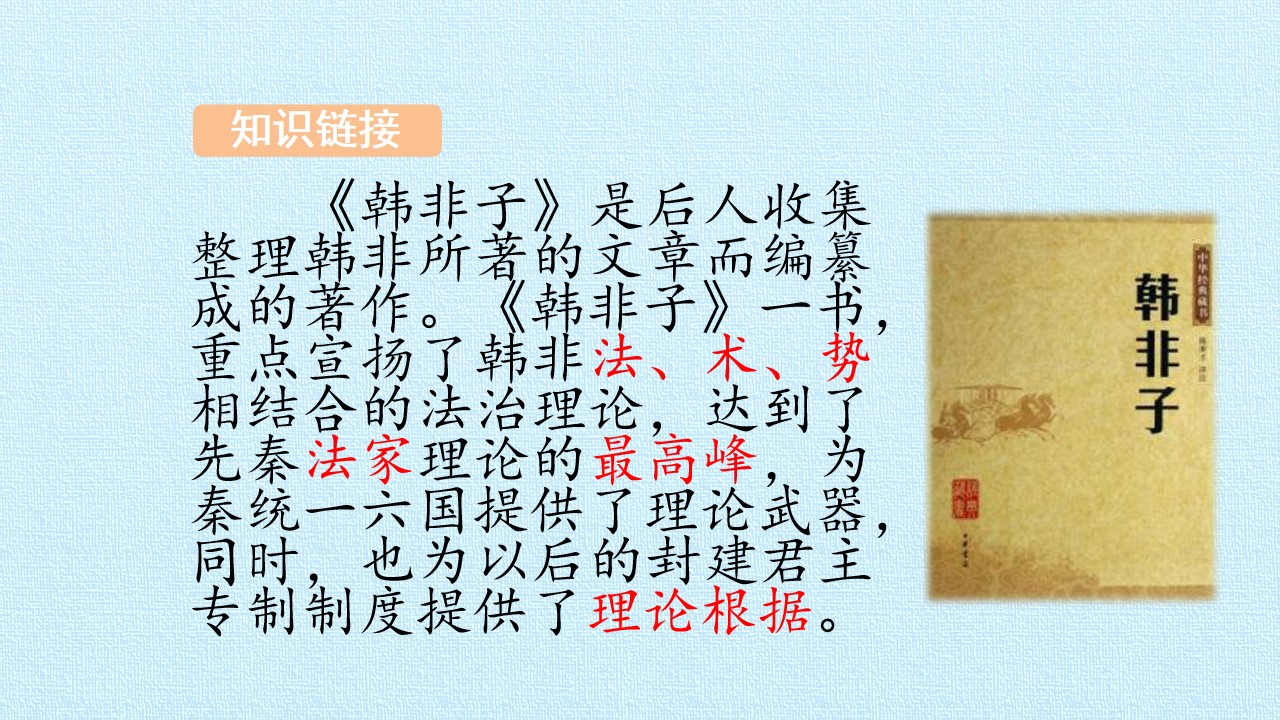 知识链接
《韩非子》是后人收集
整理韩非所著的文章而编纂
成的著作。《韩非子》一书，
重点宣扬了韩非法、术、势
相结合的法治理论，达到了
先秦法家理论的最高峰，为
秦统一六国提供了理论武器，
同时，也为以后的封建君主
专制制度提供了理论根据。
中华经典藏书
韩非子
中华书局